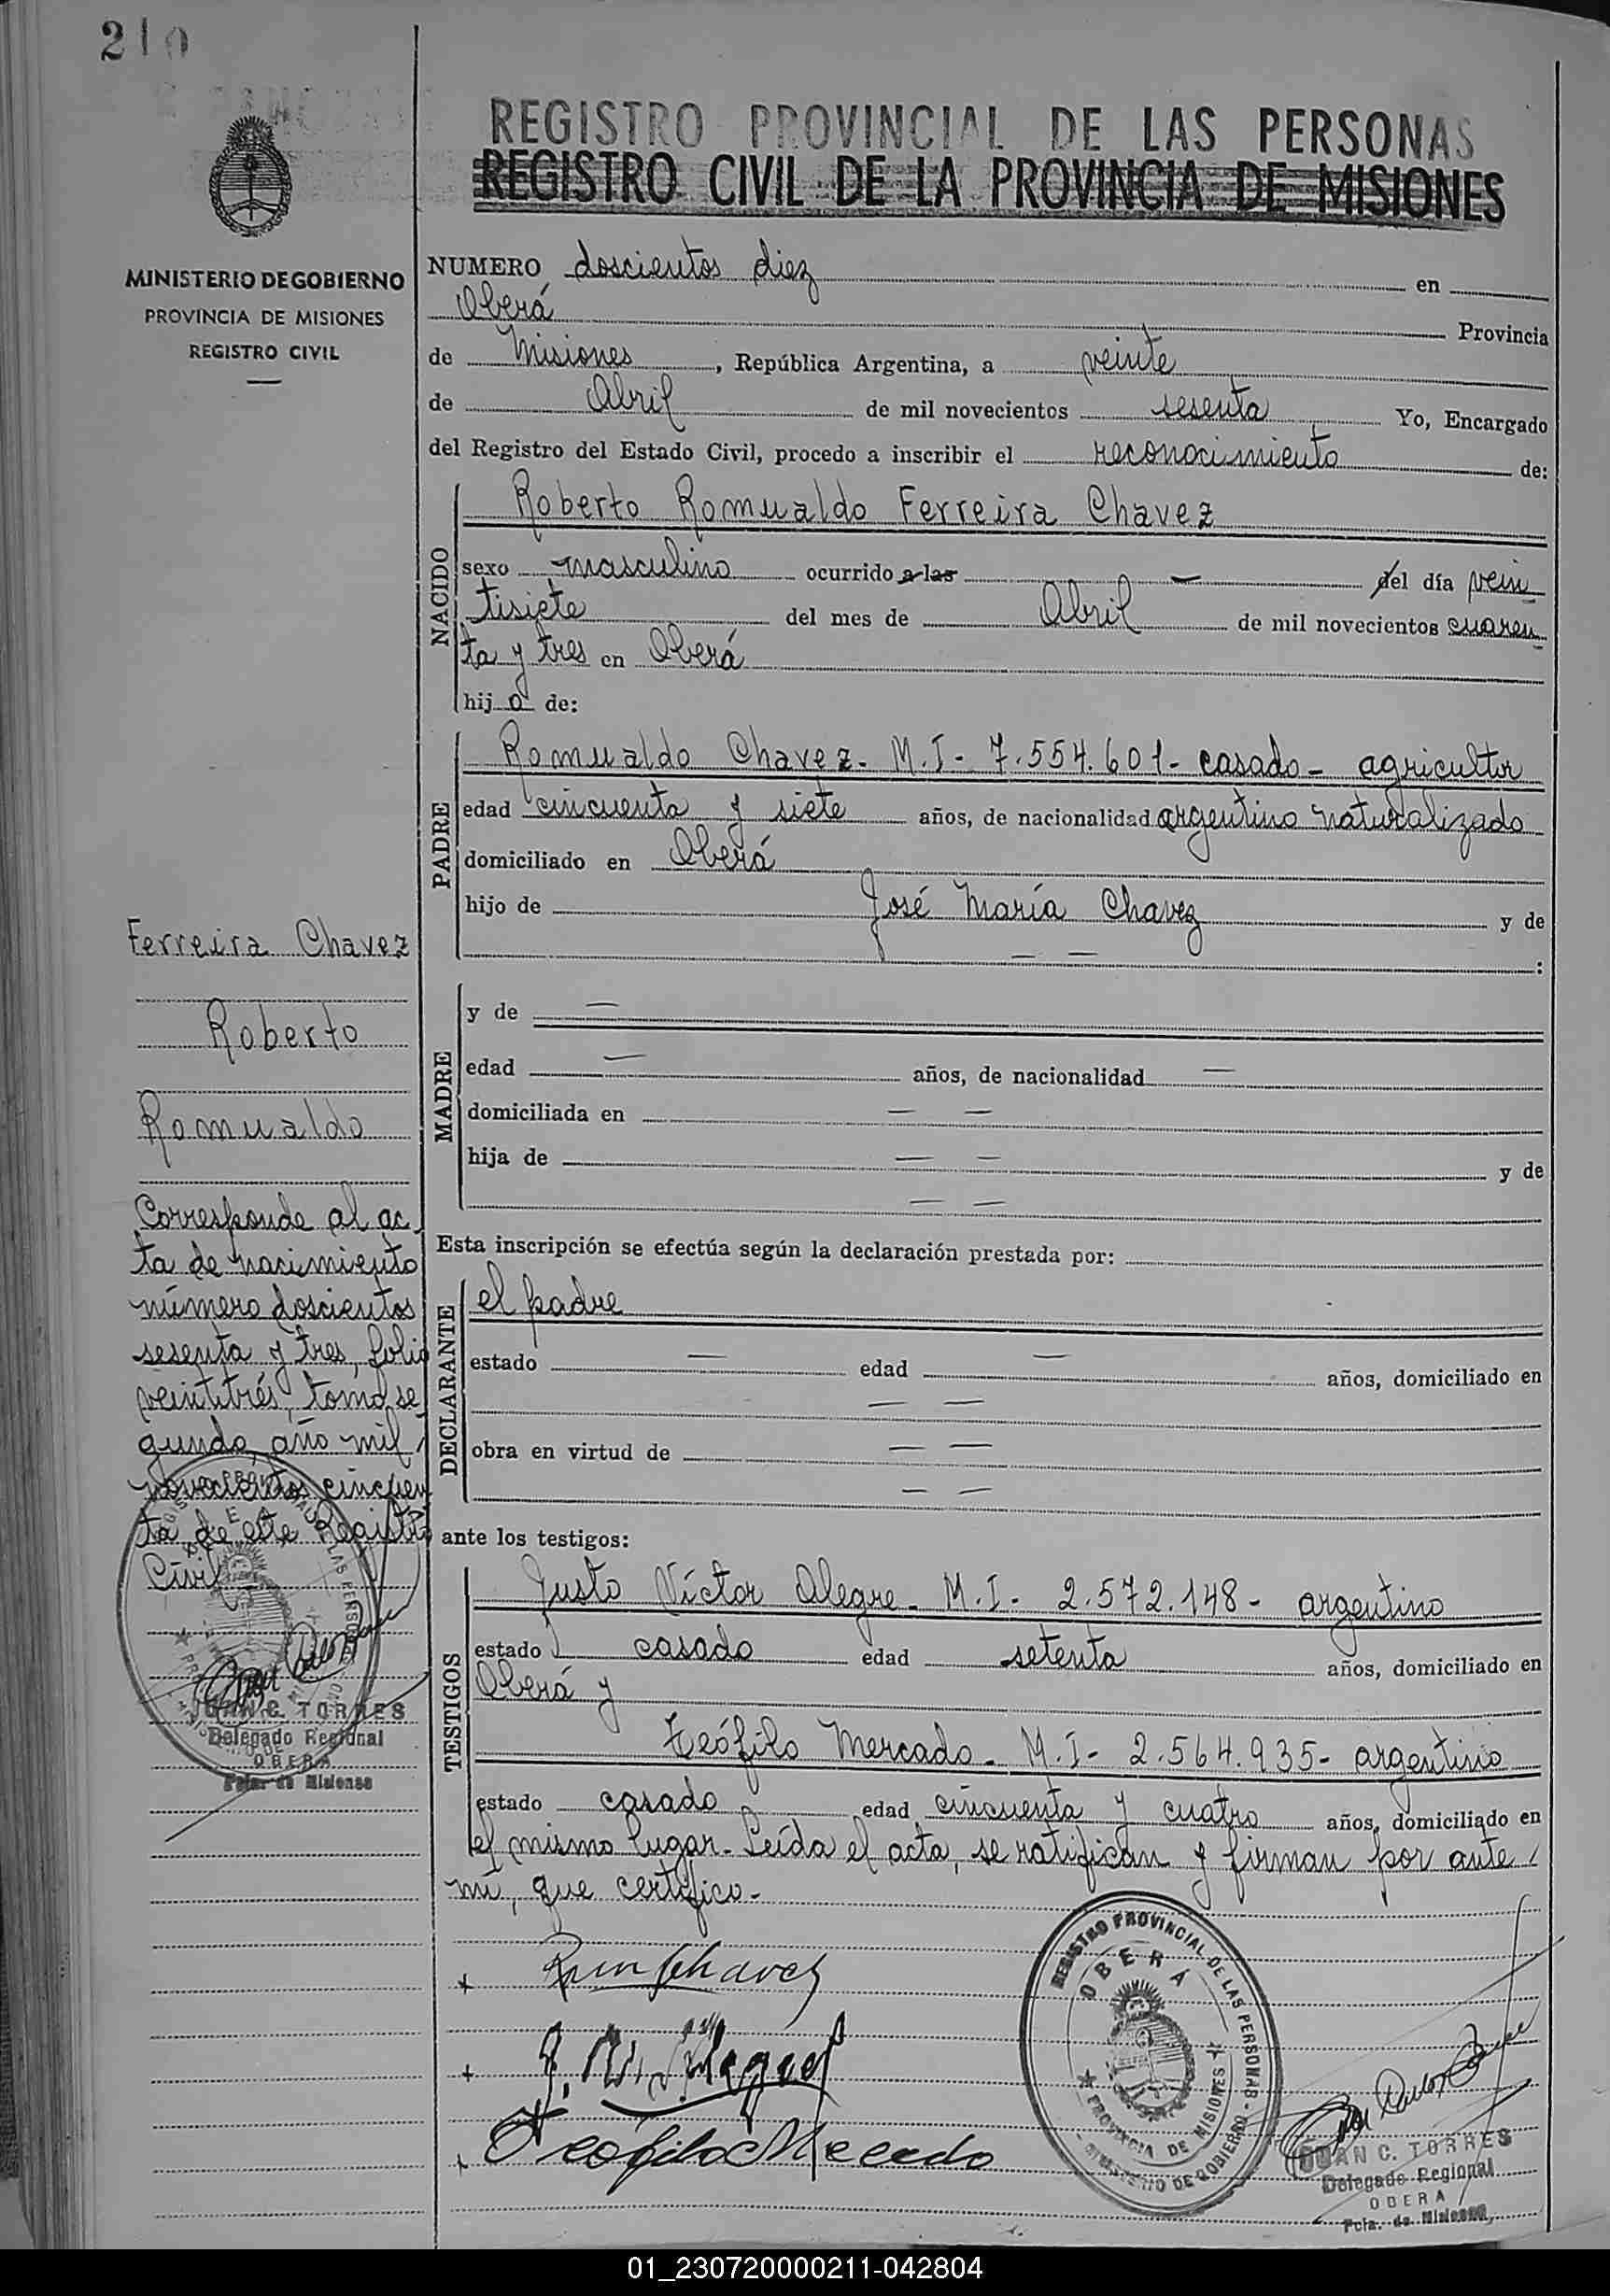 210
REGISTRO PROVINCIAL DE LAS PERSONAS
REGISTRO CIVIL DE LA PROVINCIA DE MISIONES
MINISTERIO DE GOBIERNO
PROVINCIA DE MISIONES
REGISTRO CIVIL
NUMERO doscientos diez en
Oberá Provincia
de Misiones, República Argentina, a veinte
de Abril de mil novecientos sesenta Yo, Encargado
del Registro del Estado Civil, procedo a inscribir el reconocimiento de:
NACIDO
Roberto Romualdo Ferreira Chavez
sexo masculino ocurrido a las — del día vein
tisiete del mes de Abril de mil novecientos cuaren
ta y tres en Oberá
hijo de:
PADRE
Romualdo Chavez- M.I- 7.554.601- casado- agricultor
edad cincuenta y siete años, de nacionalidad argentino naturalizado
domiciliado en Oberá
hijo de José María Chavez y de
— — :
MADRE
y de —
edad — años, de nacionalidad —
domiciliada en — —
hija de — — y de
— —
Esta inscripción se efectúa según la declaración prestada por:
DECLARANTE
el padre
estado — edad — años, domiciliado en
— —
obra en virtud de — —
— —
ante los testigos:
TESTIGOS
Justo Víctor Alegre- M.I- 2.572.148- argentino
estado casado edad setenta años, domiciliado en
Oberá y
Teófilo Mercado- M.I- 2.564.935- argentino
estado casado edad cincuenta y cuatro años, domiciliado en
el mismo lugar- Leída el acta, se ratifican y firman por ante
mí, que certifico-
Ferreira Chavez
Roberto
Romualdo
Corresponde al ac
ta de nacimiento
número doscientos
sesenta y tres, folio
veintitrés, tomo se
gundo, año mil
novecientos cincuen
ta de este Registro
Civil
JUAN C. TORRES
Delegado Regional
OBERA
Pcia. de Misiones
Rom Chavez
Teófilo Mercado
REGISTRO PROVINCIAL DE LAS PERSONAS - MINISTERIO DE GOBIERNO -
OBERÁ
PROVINCIA DE MISIONES
JUAN C. TORRES
Delegado Regional
OBERA
Pcia. de Misiones
01_230720000211-042804